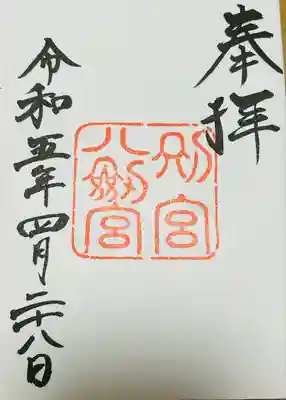 奉拝
別宮
八剱宮
令和五年四月二十八日